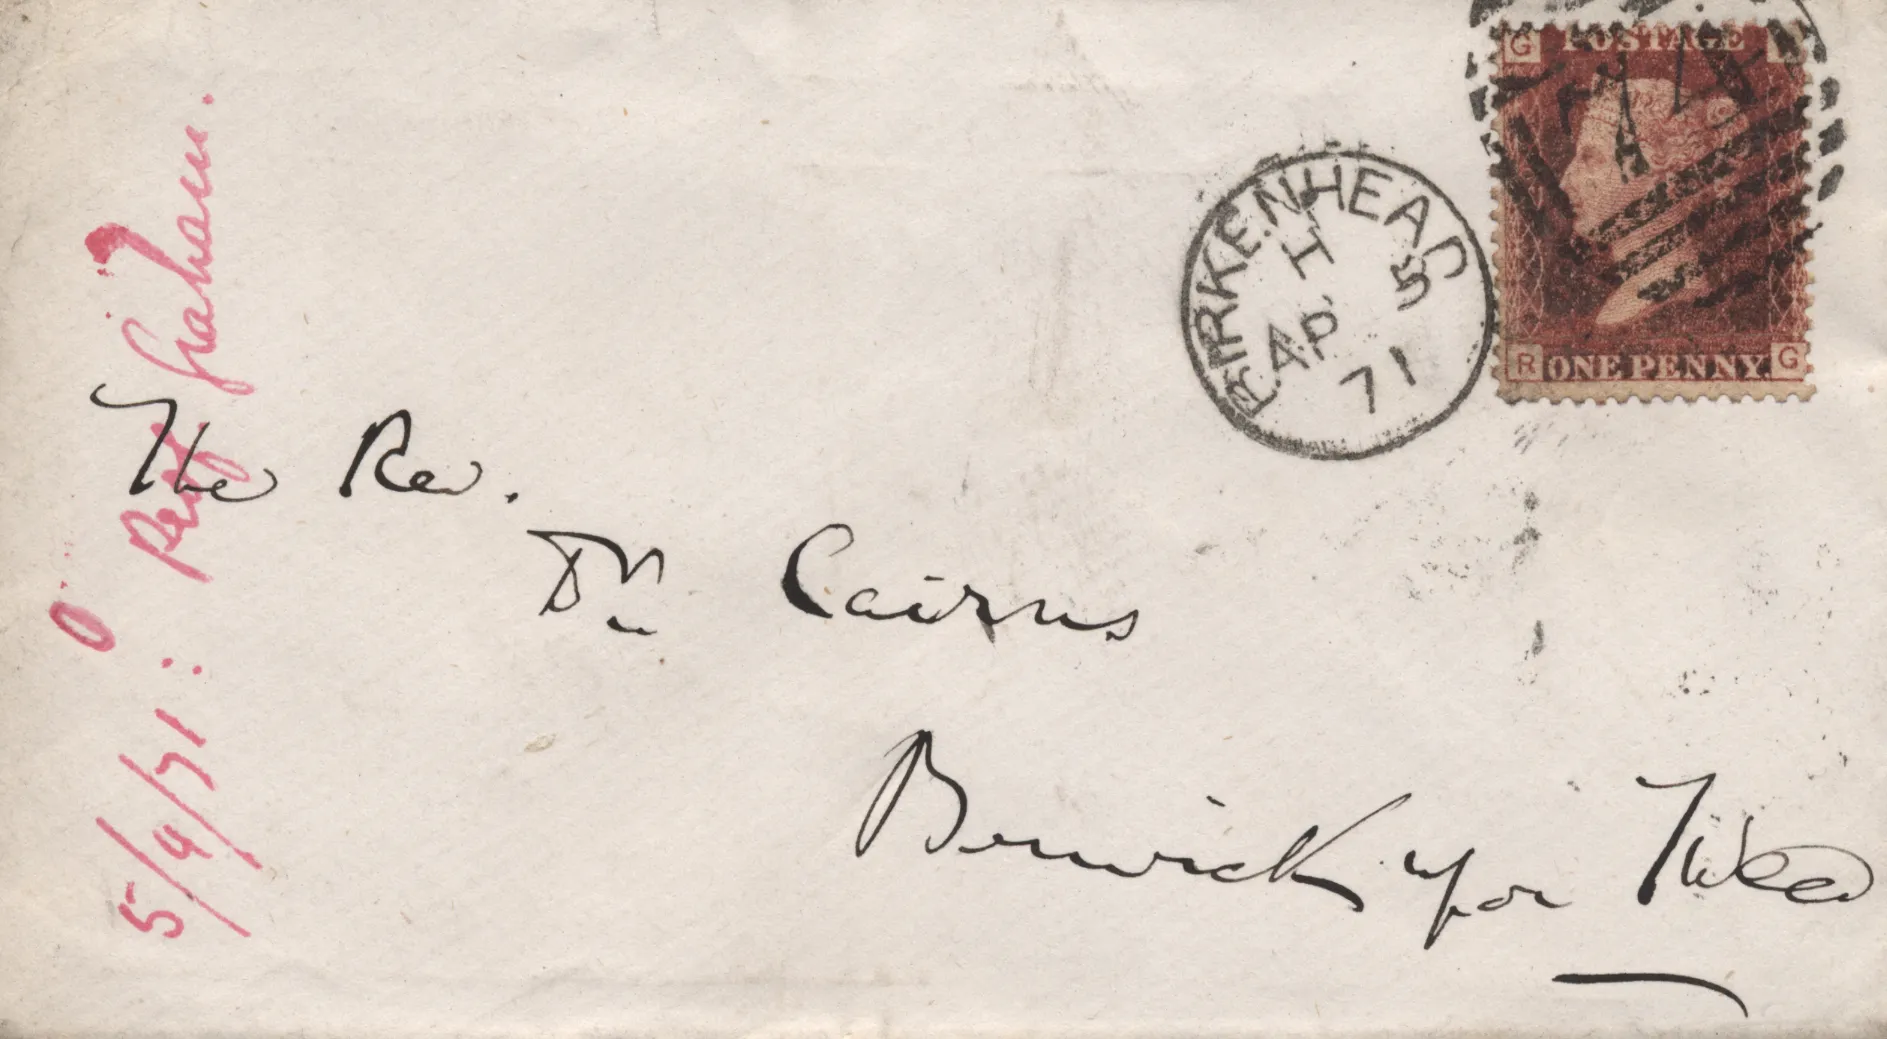 G POSTAGE
R ONE PENNY. G
BIRKENHEAD
H 5
AP
71
The Rev.
Dr Cairns
Berwick upon Tweed
5/4/71: Prof Graham.